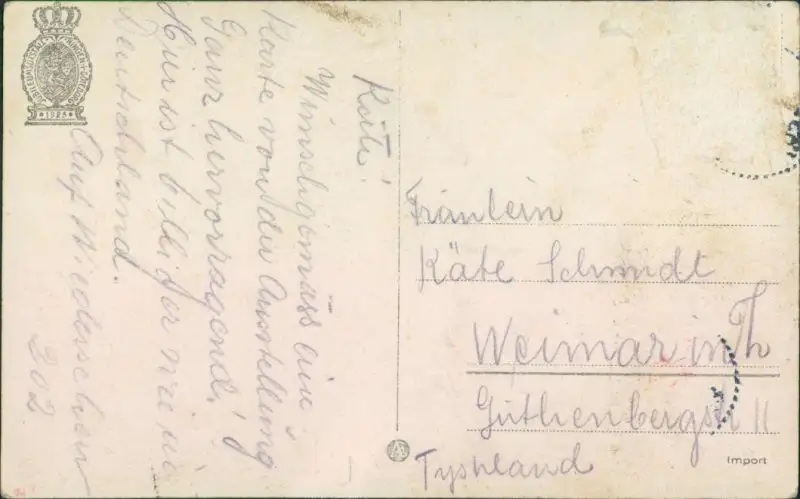 Käte!
Wunschgemäss eine
Karte von der Ausstellung
Ganz hervorragend!
Hier ist billiger wie in
Deutschland.
Auf Wiedersehen
Fräulein
Käte Schmidt
Weimar in Th
Guthenbergstr 11
Tyskland
Import
1923